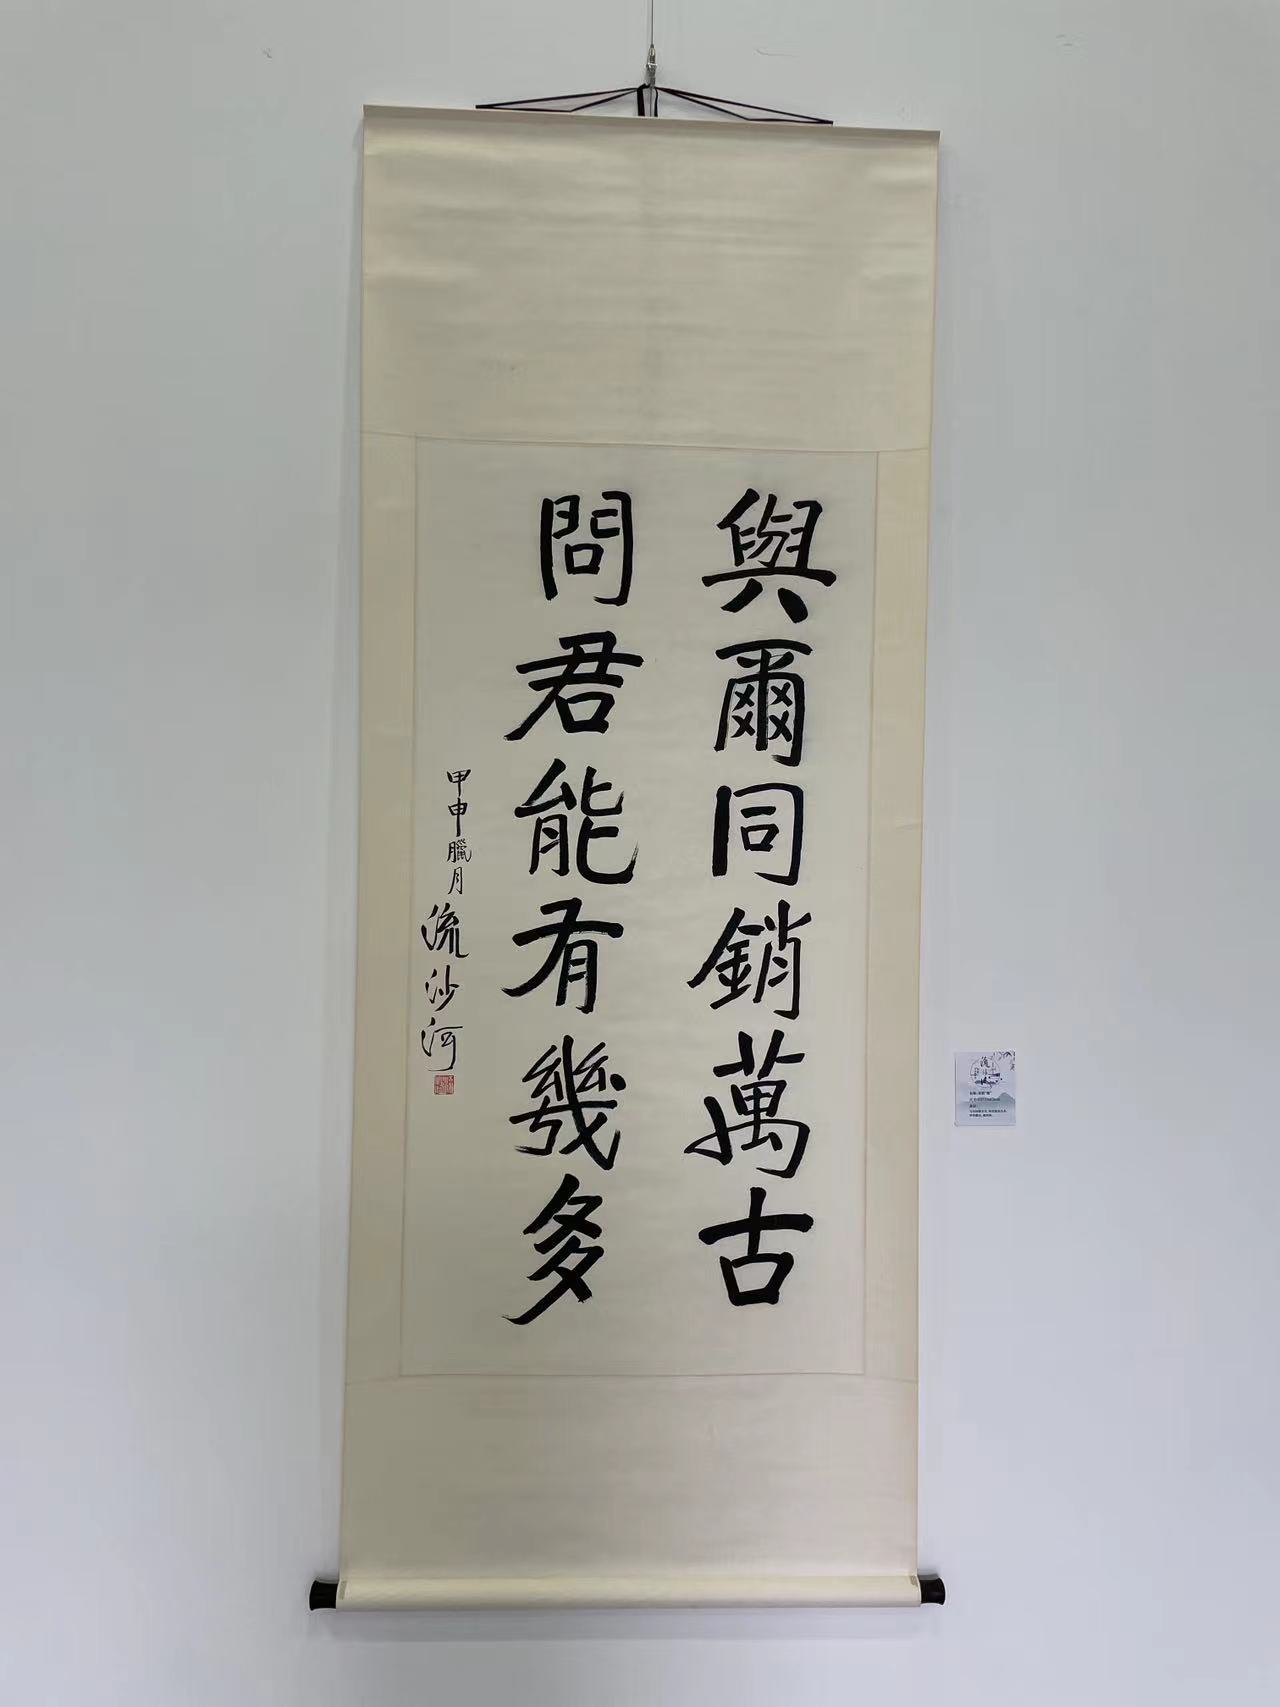 與爾同銷萬古
問君能有幾多
甲申臘月
流沙河